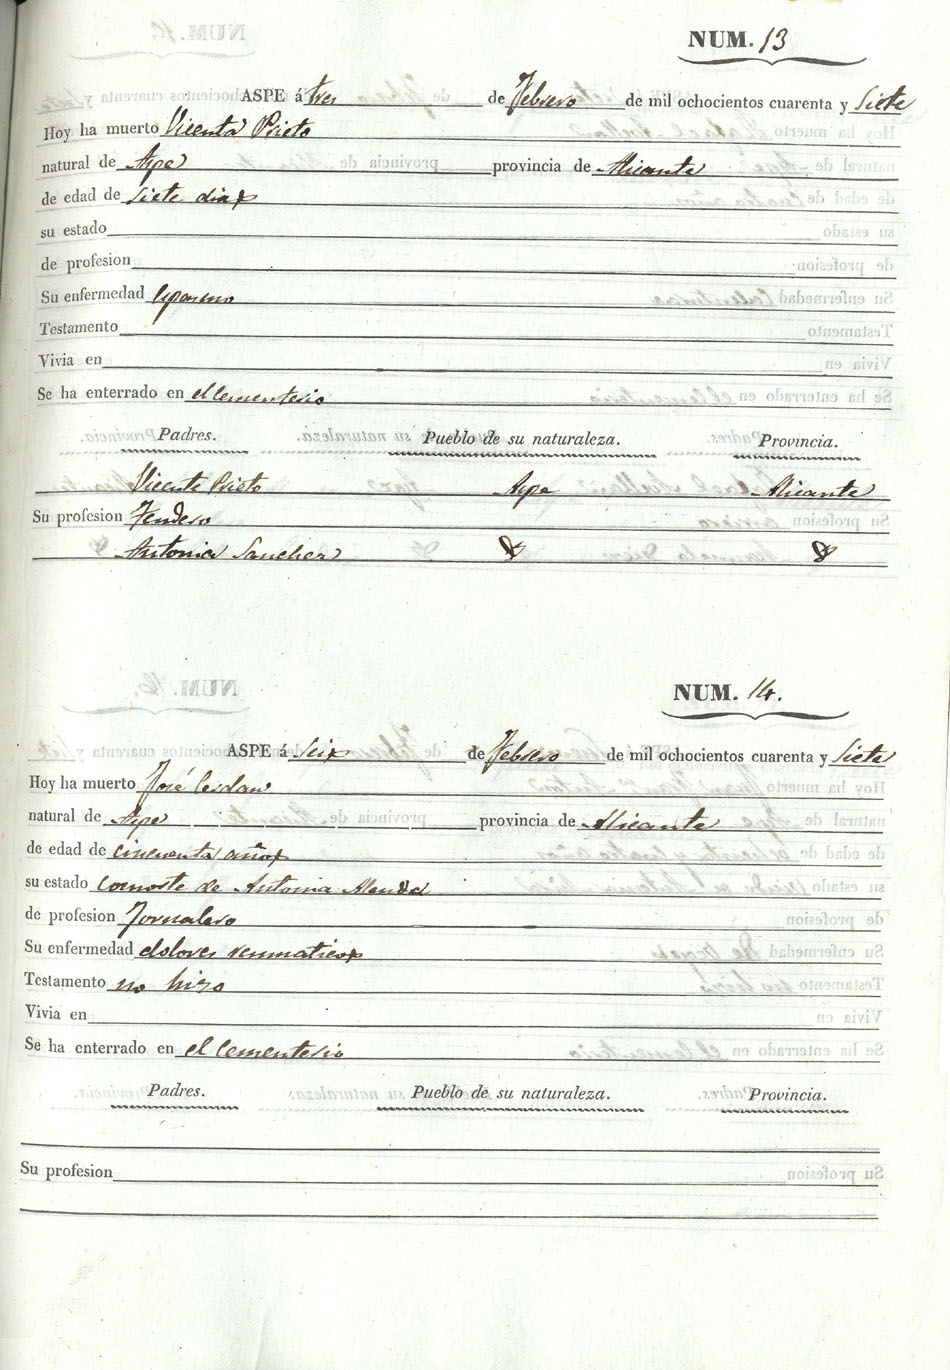 NUM. 13
ASPE á tres de Febrero de mil ochocientos cuarenta y Siete
Hoy ha muerto Vicenta Prieto
natural de Aspe provincia de Alicante
de edad de siete dias
su estado
de profesion
Su enfermedad Espasmo
Testamento
Vivia en
Se ha enterrado en el Cementerio
Padres. Pueblo de su naturaleza. Provincia.
Vicente Prieto Aspe Alicante
Su profesion Tendero
Antonia Sanchez
NUM. 14.
ASPE á Seis de Febrero de mil ochocientos cuarenta y Siete
Hoy ha muerto José
natural de Aspe provincia de Alicante
de edad de cincuenta años
su estado consorte de Antonia
de profesion Jornalero
Su enfermedad dolores reumaticos
Testamento no hizo
Vivia en
Se ha enterrado en el Cementerio
Padres. Pueblo de su naturaleza. Provincia.
Su profesion